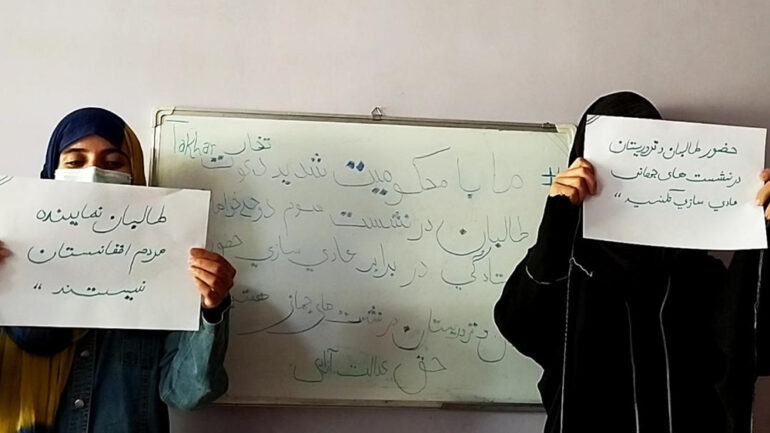 طالبان نماینده
مردم افغانستان
نیستند"
تخار Takhar
ما با محکومیت شدید دعوت
طالبان در نشست سوم دوحه خواها
ستادگی در برابر عادی سازی حضور
تروریستان در نشست های جهانی هستیم
حق عدالت آزادی
حضور طالبان و تروریستان
در نشست های جهانی
عادی سازی نکنید"